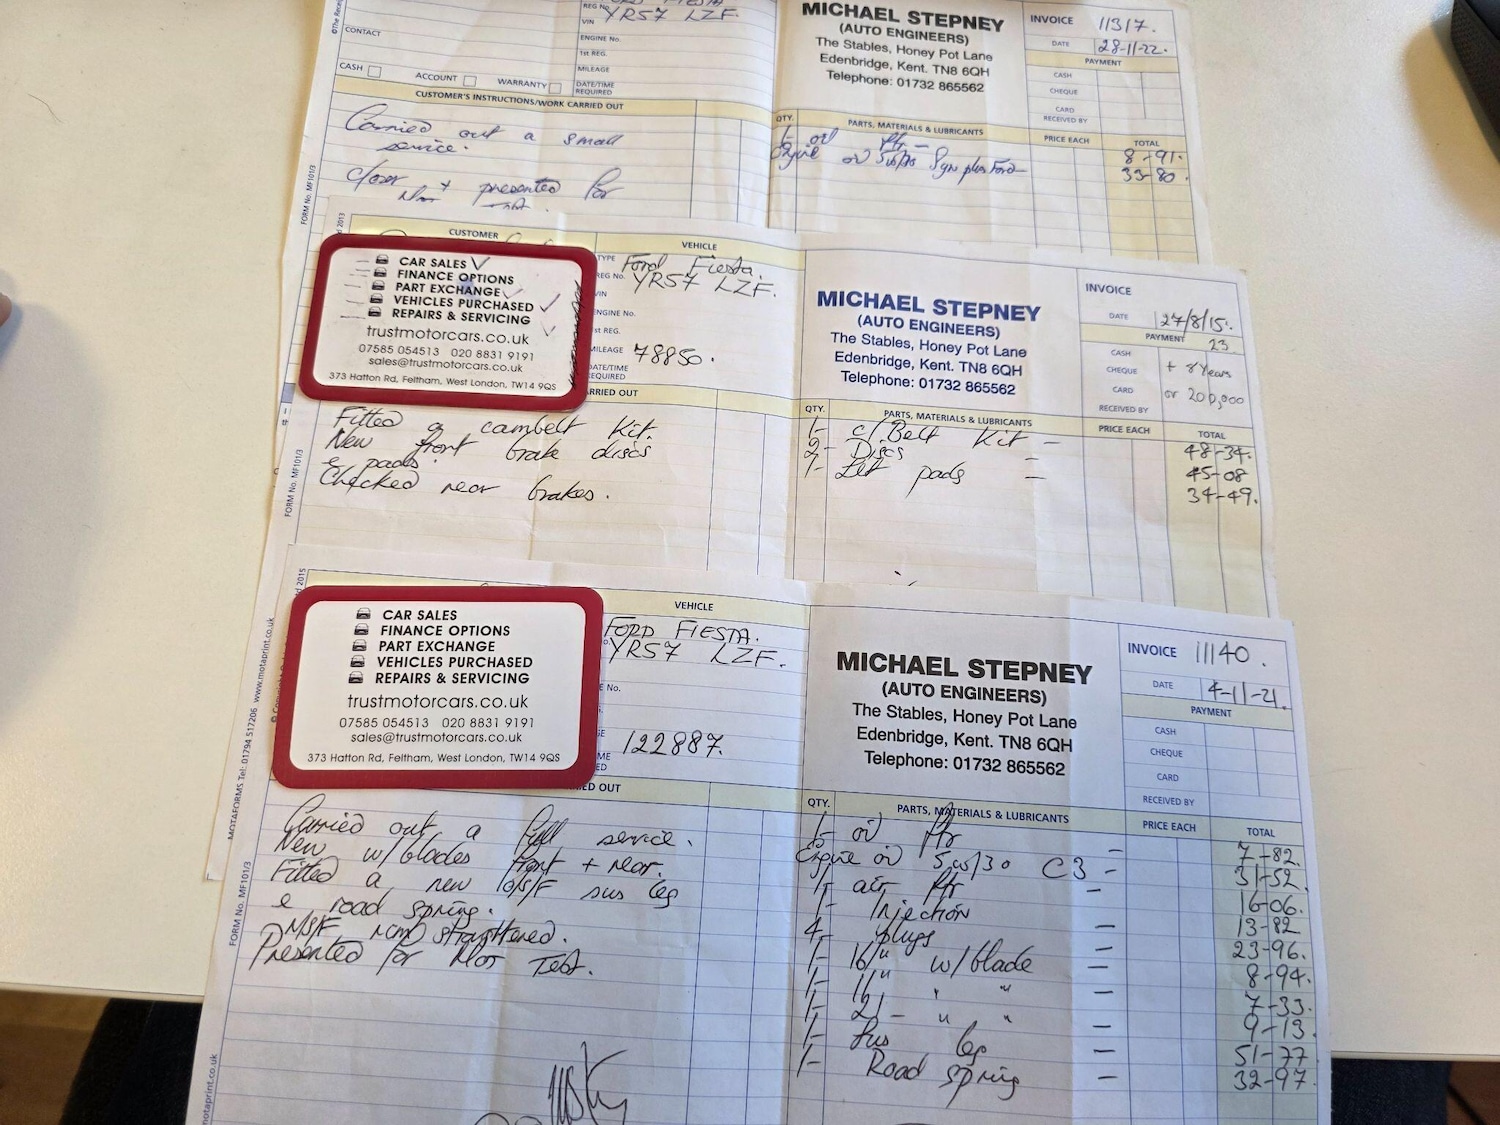 REG No. YR57 LZF.
VIN
ENGINE No.
1st REG.
MILEAGE
DATE/TIME REQUIRED
CONTACT
CASH ACCOUNT WARRANTY
CUSTOMER'S INSTRUCTIONS/WORK CARRIED OUT
Carried out a small
service.
presented for
FORM No. MF101/3
MICHAEL STEPNEY
(AUTO ENGINEERS)
The Stables, Honey Pot Lane
Edenbridge, Kent. TN8 6QH
Telephone: 01732 865562
INVOICE 11317.
DATE 28-11-22.
PAYMENT
CASH
CHEQUE
CARD
RECEIVED BY
QTY. PARTS, MATERIALS & LUBRICANTS PRICE EACH TOTAL
1- oil fltr - 8-91.
Engine oil 5w/30 Syn plus Ford 33-80.
CUSTOMER
VEHICLE
CAR SALES
FINANCE OPTIONS
PART EXCHANGE
VEHICLES PURCHASED
REPAIRS & SERVICING
trustmotorcars.co.uk
07585 054513 020 8831 9191
sales@trustmotorcars.co.uk
373 Hatton Rd, Feltham, West London, TW14 9QS
TYPE Ford Fiesta.
REG No. YR57 LZF.
VIN
ENGINE No.
1st REG.
MILEAGE 78850.
DATE/TIME REQUIRED
ARRIED OUT
Fitted a cambelt kit.
New front brake discs
& pads.
Checked rear brakes.
FORM No. MF101/3
MICHAEL STEPNEY
(AUTO ENGINEERS)
The Stables, Honey Pot Lane
Edenbridge, Kent. TN8 6QH
Telephone: 01732 865562
INVOICE
DATE 27/8/15.
PAYMENT 23
CASH + 8 Years
CHEQUE
CARD or 200,000
RECEIVED BY
QTY. PARTS, MATERIALS & LUBRICANTS PRICE EACH TOTAL
1- c/Belt kit - 48-34.
2- Discs - 45-08
1- Set pads - 34-49.
VEHICLE
CAR SALES
FINANCE OPTIONS
PART EXCHANGE
VEHICLES PURCHASED
REPAIRS & SERVICING
trustmotorcars.co.uk
07585 054513 020 8831 9191
sales@trustmotorcars.co.uk
373 Hatton Rd, Feltham, West London, TW14 9QS
FORD FIESTA.
YR57 LZF.
E No.
122887.
ED OUT
Carried out a full service.
New w/blades front + rear.
Fitted a new o/s/F sus leg
& road spring.
N/S/F straightened.
Presented for Mot Test.
MOTAFORMS Tel: 01794 517206 www.motaprint.co.uk
FORM No. MF101/3
motaprint.co.uk
MICHAEL STEPNEY
(AUTO ENGINEERS)
The Stables, Honey Pot Lane
Edenbridge, Kent. TN8 6QH
Telephone: 01732 865562
INVOICE 11140.
DATE 4-11-21.
PAYMENT
CASH
CHEQUE
CARD
RECEIVED BY
QTY. PARTS, MATERIALS & LUBRICANTS PRICE EACH TOTAL
1- oil fltr - 7-82.
Engine oil 5w/30 C3 - 31-52.
1- air fltr - 16-06.
1- Injection 13-82
4- plugs - 23-96.
1- 16" w/blade - 8-94.
1- 11" " " - 7-33.
1- 21- " " - 9-13.
1- Sus leg - 51-77
1- Road spring - 32-97